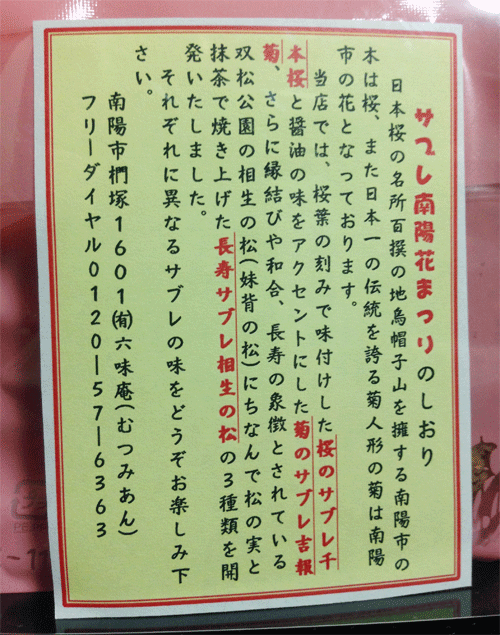 サブレ南陽花まつりのしおり
日本桜の名所百撰の地烏帽子山を擁する南陽市の
木は桜、また日本一の伝統を誇る菊人形の菊は南陽
市の花となっております。
当店では、桜葉の刻みで味付けした桜のサブレ千
本桜と醤油の味をアクセントにした菊のサブレ吉報
菊、さらに縁結びや和合、長寿の象徴とされている
双松公園の相生の松(妹背の松)にちなんで松の実と
抹茶で焼き上げた長寿サブレ相生の松の3種類を開
発いたしました。
それぞれに異なるサブレの味をどうぞお楽しみ下
さい。
南陽市椚塚1601㈲六味庵(むつみあん)
フリーダイヤル0120-57-6363